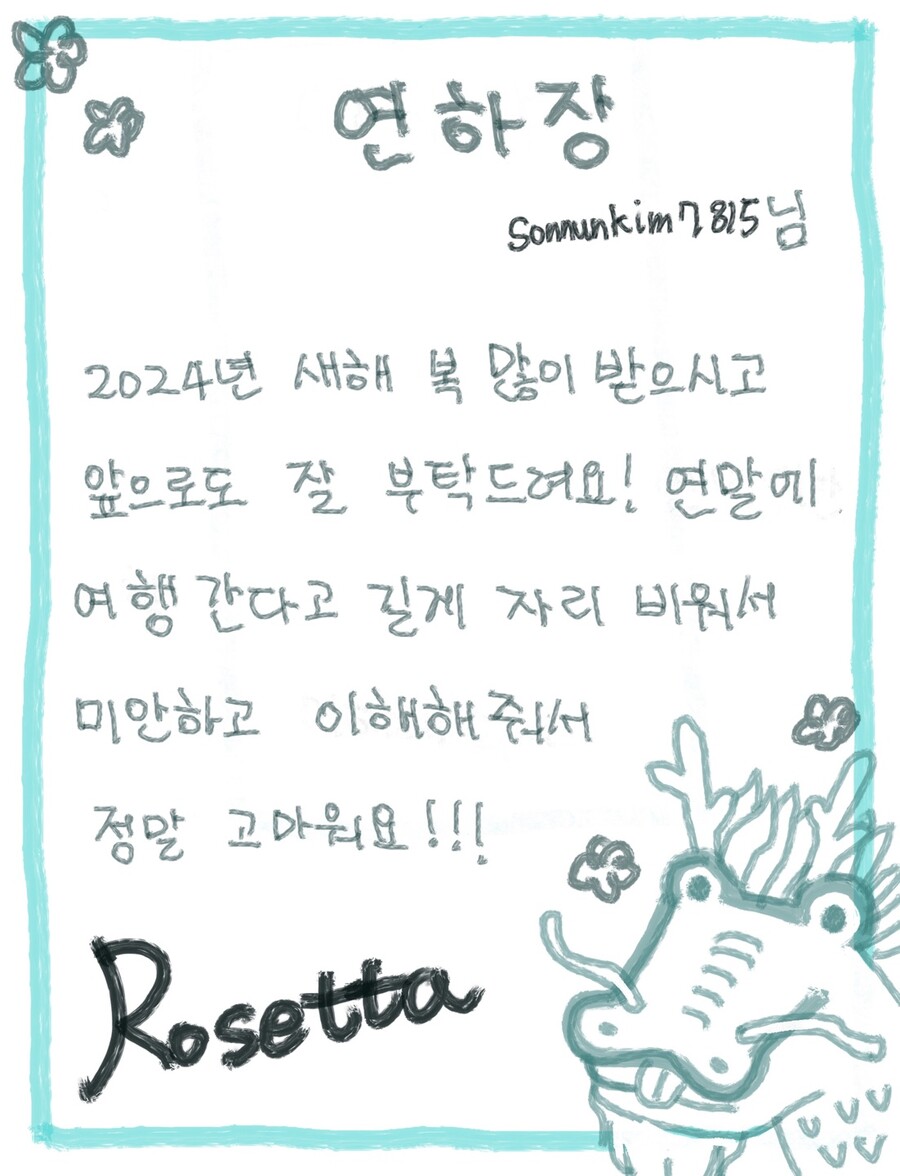 연하장
Sonnunkim7815님
2024년 새해 복 많이 받으시고
앞으로도 잘 부탁드려요! 연말에
여행 간다고 길게 자리 비워서
미안하고 이해해줘서
정말 고마워요!!!
Rosetta